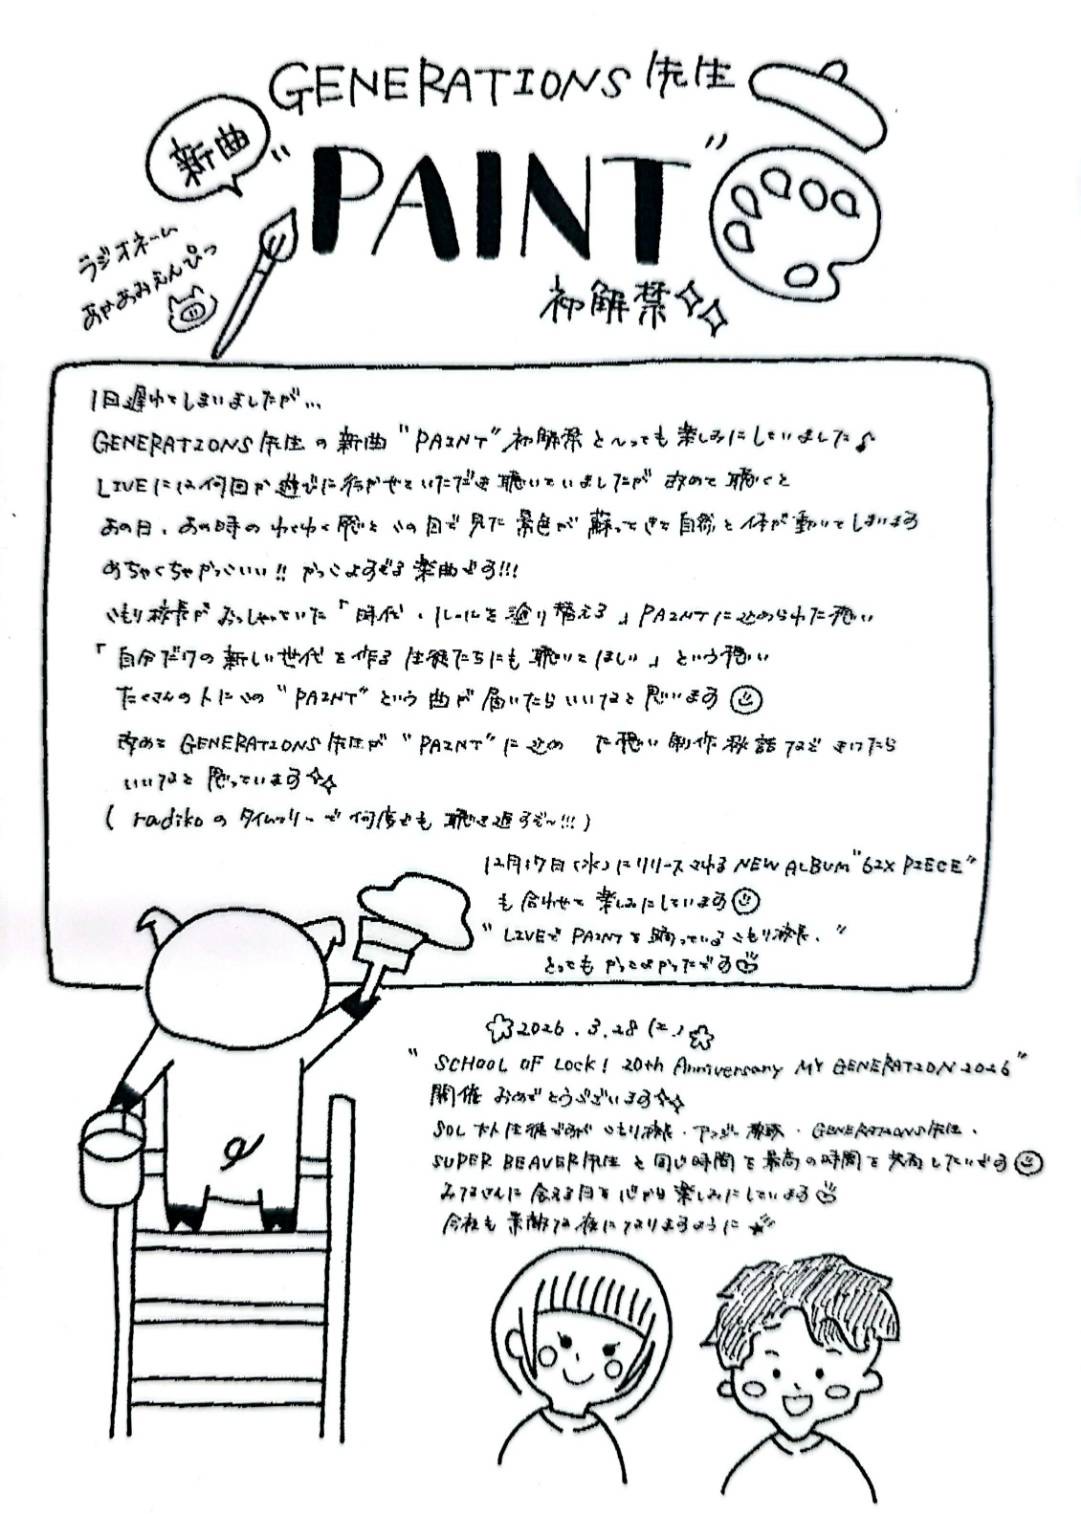 GENERATIONS 先生
新曲
"PAINT"
初解禁
ラジオネーム
あゃあみえんぴつ
1日遅れてしまいましたが...
GENERATIONS先生の新曲"PAINT"初解禁と〜っても楽しみにしていました♪
LIVEには何回か遊びに行かせていただき聴いていましたが改めて聴くと
あの日、あの時のわくわく感とこの目で見た景色が蘇ってきて自然と体が動いてしまいます
めちゃくちゃかっこいい!! かっこよすぎる楽曲です!!!
こもり校長がおっしゃっていた「時代・ルールを塗り替える」PAINTに込められた想い
「自分だけの新しい世代を作る生徒たちにも聴いてほしい」という想い
たくさんの人にこの"PAINT"という曲が届いたらいいなと思います
改めて GENERATIONS先生が"PAINT"に込め た想い 制作秘話などきけたら
いいなと思っています
( radikoのタイムフリーで何度でも聴き返すぞ〜!!!)
12月17日(水)にリリースされるNEW ALBUM"6IX PIECE"
も合わせて楽しみにしています
"LIVEでPAINTを踊っているこもり校長、"
とってもかっこよかったです
2026.3.28(土)
"SCHOOL OF LOCK! 20th Anniversary MY GENERATION 2026"
開催おめでとうございます
SOL大人生徒ですがこもり校長・アンジー教頭・GENERATIONS先生、
SUPER BEAVER先生と同じ時間を最高の時間を共有したいです
みなさんに会える日を心から楽しみにしています
今夜も素敵な夜になりますように★